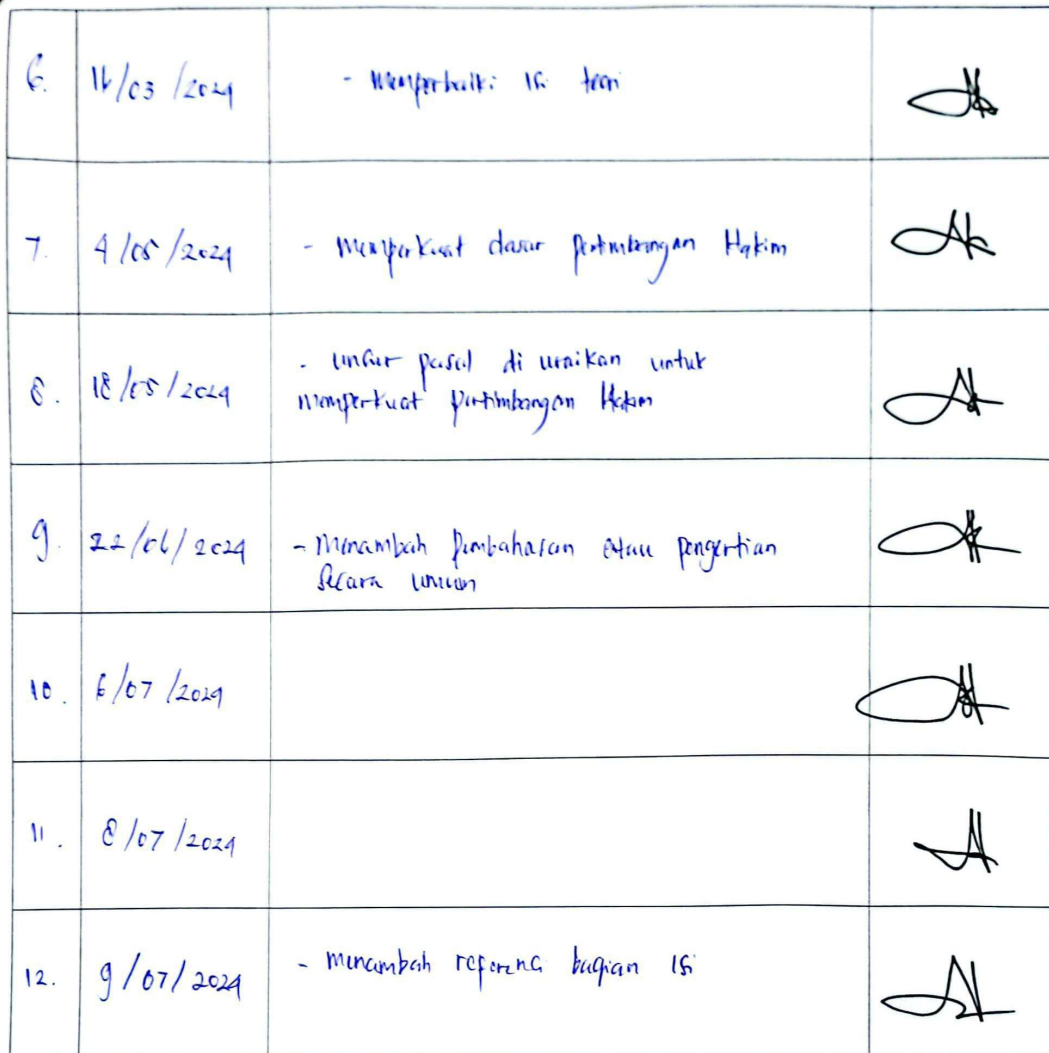 6. 16/03/2024 - memperbaiki isi teori
7. 4/05/2024 - memperkuat dasar pertimbangan Hakim
8. 18/05/2024 - unsur pasal di uraikan untuk
memperkuat pertimbangan Hakim
9. 22/06/2024 - menambah pembahasan atau pengertian
secara umum
10. 6/07/2024
11. 8/07/2024
12. 9/07/2024 - menambah referensi bagian isi